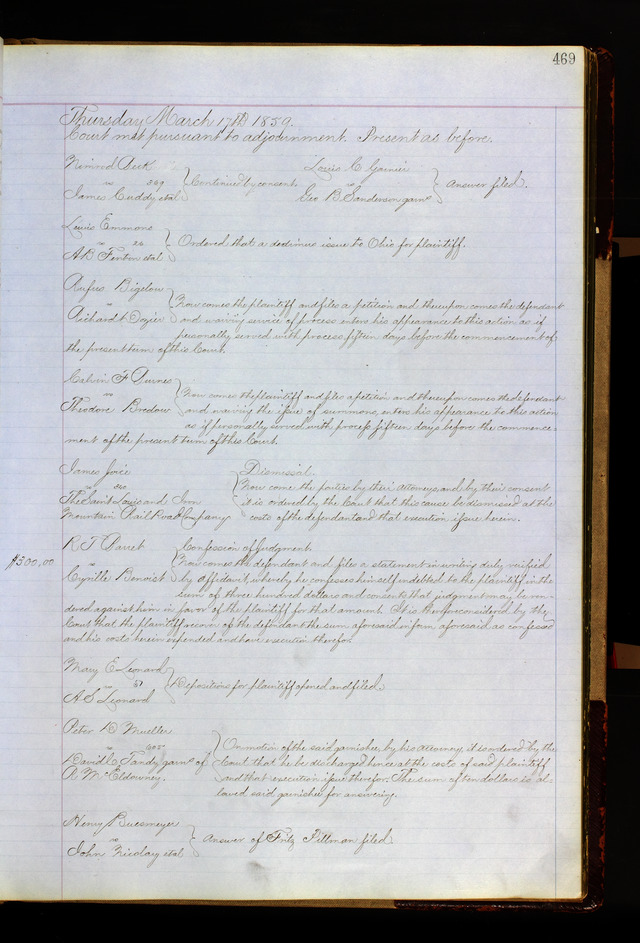 469
Thursday March 17th 1859.
Court met pursuant to adjournment. Present as before.
Nimrod
vs 389 Continued by consent.
James Cuddy et al
Louis C Garnier
vs Answer filed.
Geo R Sanderson garne
Lewis Emmons
vs 26 Ordered that a dedimus issue to Ohio for plaintiff.
A B Fenton et al
Rufus Bigelow
vs Now comes the plaintiff and files a petition and thereupon comes the defendant
Richard L Dozier and waiving service of process enters his appearance to this action as if
personally served with process fifteen days before the commencement of
the present term of this Court.
Calvin F Burnes
vs Now comes the plaintiff and files a petition and thereupon comes the defendant
Theodore Bredow and waiving the issue of summons, enters his appearance to this action
as if personally served with process fifteen days before the commence-
ment of the present term of this Court.
James Joice Dismissal
vs Now come the parties by their attorneys, and by their consent
The Saint Louis and Iron it is ordered by the Court that this cause be dismissed at the
Mountain Rail Road Company costs of the defendant and that execution issue herein.
R T Barret Confession of Judgment.
$300.00 vs Now comes the defendant and files a statement in writing duly verified
Cyrille Benoist by affidavit, whereby he confesses himself indebted to the plaintiff in the
sum of three hundred dollars and consents that judgment may be ren-
dered against him in favor of the plaintiff for that amount. It is therefore considered by the
Court that the plaintiff recover of the defendant the sum aforesaid in form aforesaid as confessed
and his costs herein expended and have execution therefor.
Mary E Leonard
vs 57 Depositions for plaintiff opened and filed.
A S Leonard
Peter D Mueller
vs 605 On motion of the said garnishee, by his attorney, it is ordered by the
David C Tandy garne of Court that he be discharged hence at the costs of said plaintiff
R McEldowney. and that execution issue therefor. The sum of ten dollars is al-
lowed said garnishee for answering.
Henry Buesmeyer
vs Answer of Fritz Pittman filed.
John Nicolay et al